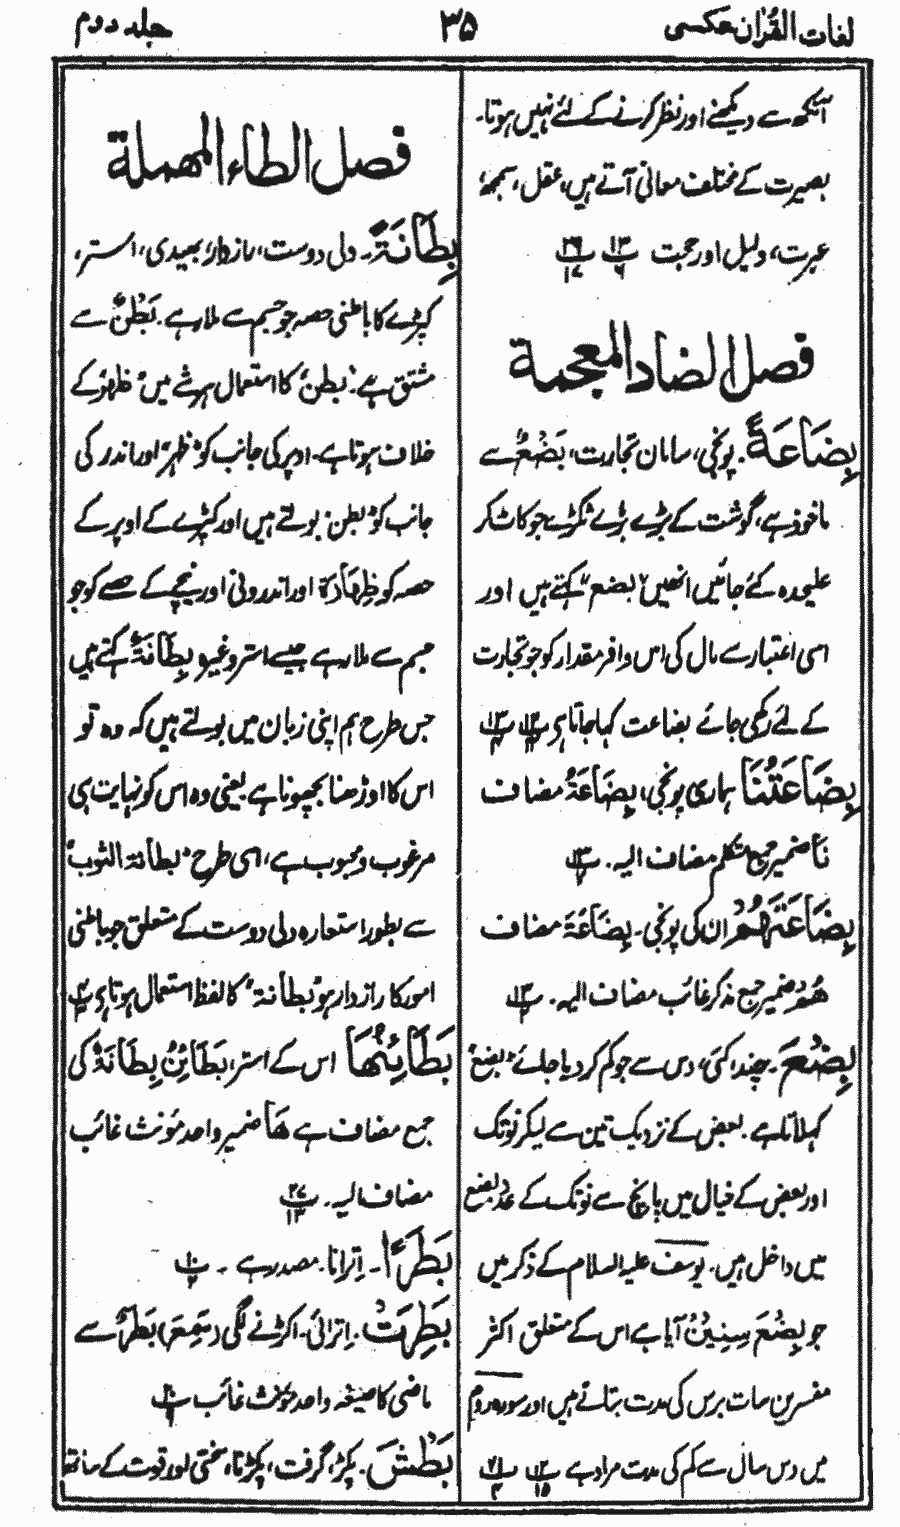 لغات القرآن عکسی
۳۵
جلد دوم
آنکھ سے دیکھنے اور نظر کرنے کے لئے نہیں ہوتا۔
بصیرت کے مختلف معانی آتے ہیں، عقل، سمجھ،
عبرت، دلیل اور حجت
فصل الضاد المعجمة
بِضَاعَةً۔ پونجی، سامان تجارت، بَضْعٌ سے
ماخوذ ہے، گوشت کے بڑے بڑے ٹکڑے جو کاٹ کر
علیحدہ کئے جائیں انھیں "بضع" کہتے ہیں اور
اسی اعتبار سے مال کی اس وافر مقدار کو جو تجارت
کے لئے رکھی جائے بضاعت کہا جاتا ہی
بِضَاعَتُنَا ہماری پونجی، بِضَاعَةُ مضاف
نَا ضمیر جمع متکلم مضاف الیہ۔
بِضَاعَتَهُمْ ان کی پونجی۔ بِضَاعَةَ مضاف
هُمْ ضمیر جمع مذکر غائب مضاف الیہ۔
بِضْعَ۔ چند، کئی، دس سے جو کم کر دیا جائے "بضع"
کہلاتا ہے۔ بعض کے نزدیک تین سے لیکر نو تک
اور بعض کے خیال میں پانچ سے نو تک کے عدد بضع
میں داخل ہیں۔ یوسف علیہ السلام کے ذکر میں
جو بِضْعَ سِنِينَ آیا ہے اس کے متعلق اکثر
مفسرین سات برس کی مدت بتاتے ہیں اور سورہ روم
میں دس سال سے کم کی مدت مراد ہے
فصل الطاء المهملة
بِطَانَةً۔ دلی دوست، رازدار، بھیدی، استر،
کپڑے کا باطنی حصہ جو جسم سے ملا رہے۔ بَطْنٌ سے
مشتق ہے۔ "بطن" کا استعمال ہر شے میں "ظہر" کے
خلاف ہوتا ہے۔ اوپر کی جانب کو "ظہر" اور اندر کی
جانب کو "بطن" بولتے ہیں اور کپڑے کے اوپر کے
حصہ کو ظِهَارَة اور اندرونی اور نیچے کے حصے کو جو
جسم سے ملا رہے جیسے استر وغیرہ بِطَانَةٌ کہتے ہیں
جس طرح ہم اپنی زبان میں بولتے ہیں کہ وہ تو
اس کا اوڑھنا بچھونا ہے یعنی وہ اس کو نہایت ہی
مرغوب و محبوب ہے، اسی طرح "بطانة الثوب"
سے بطور استعارہ دلی دوست کے متعلق جو باطنی
امور کا رازدار ہو "بطانة" کا لفظ استعمال ہوتا ہی
بَطَائِنُهَا اس کے استر، بَطَائِنُ بِطَانَةٌ کی
جمع مضاف ہے هَا ضمیر واحد مؤنث غائب
مضاف الیہ۔
بَطَرًا۔ اِترانا۔ مصدر ہے ۔
بَطِرَتْ۔ اِترائی۔ اکڑنے لگی (سَمِعَ) بَطَرٌ سے
ماضی کا صیغہ واحد مؤنث غائب
بَطْشَ۔ پکڑ، گرفت، پکڑنا، سختی اور قوت کے ساتھ